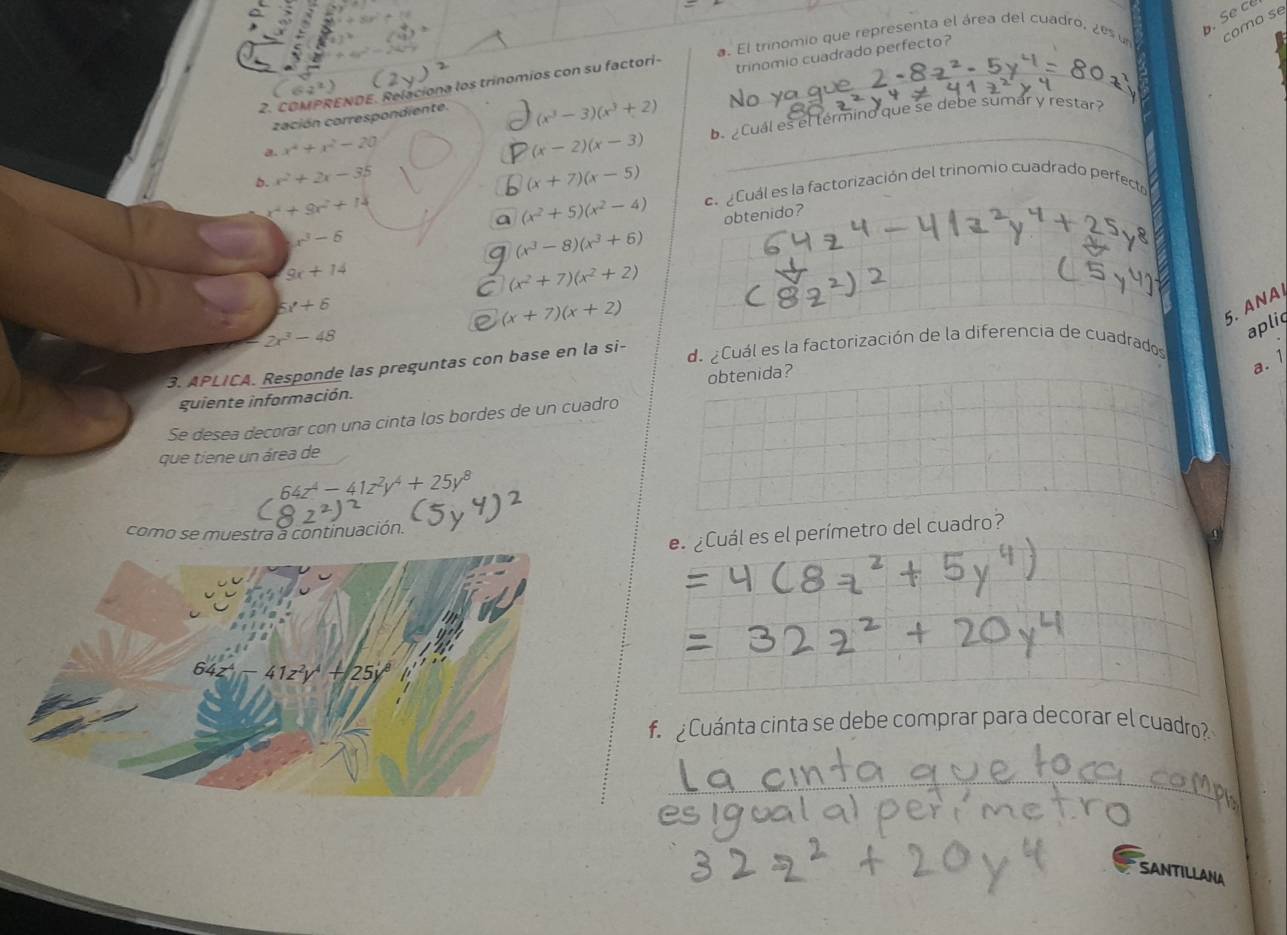 (6z²) (2y)²
2. COMPRENDE. Relaciona los trinomios con su factori-
zación correspondiente.
a. x⁴ + x² − 20
b. x² + 2x − 35
x⁴ + 9x² + 14
x³ − 6
9x + 14
5x³ + 6
− 2x³ − 48
d (x³ − 3)(x³ + 2)
(x − 2)(x − 3)
b (x + 7)(x − 5)
a (x² + 5)(x² − 4)
g (x³ − 8)(x³ + 6)
c (x² + 7)(x² + 2)
e (x + 7)(x + 2)
3. APLICA. Responde las preguntas con base en la si-
guiente información.
Se desea decorar con una cinta los bordes de un cuadro
que tiene un área de
64z⁴ − 41z²y⁴ + 25y⁸
(8z²)² (5y⁴)²
como se muestra a continuación.
64z⁴ − 41z²y⁴ + 25y⁸
a. El trinomio que representa el área del cuadro, ¿es un
trinomio cuadrado perfecto?
No ya que 2 · 8z² · 5y⁴ = 80z²y
80z²y⁴ ≠ 41z²y⁴
b. ¿Cuál es el término que se debe sumar y restar?
c. ¿Cuál es la factorización del trinomio cuadrado perfecto
obtenido?
64z⁴ − 41z²y⁴ + 25y⁸
(8z²)² (5y⁴)
d. ¿Cuál es la factorización de la diferencia de cuadrados
obtenida?
e. ¿Cuál es el perímetro del cuadro?
= 4(8z² + 5y⁴)
= 32z² + 20y⁴
f. ¿Cuánta cinta se debe comprar para decorar el cuadro?
La cinta que toca
es igual al perímetro
32z² + 20y⁴
SANTILLANA
b. Se
como se
5. ANAL
aplic
a. 1